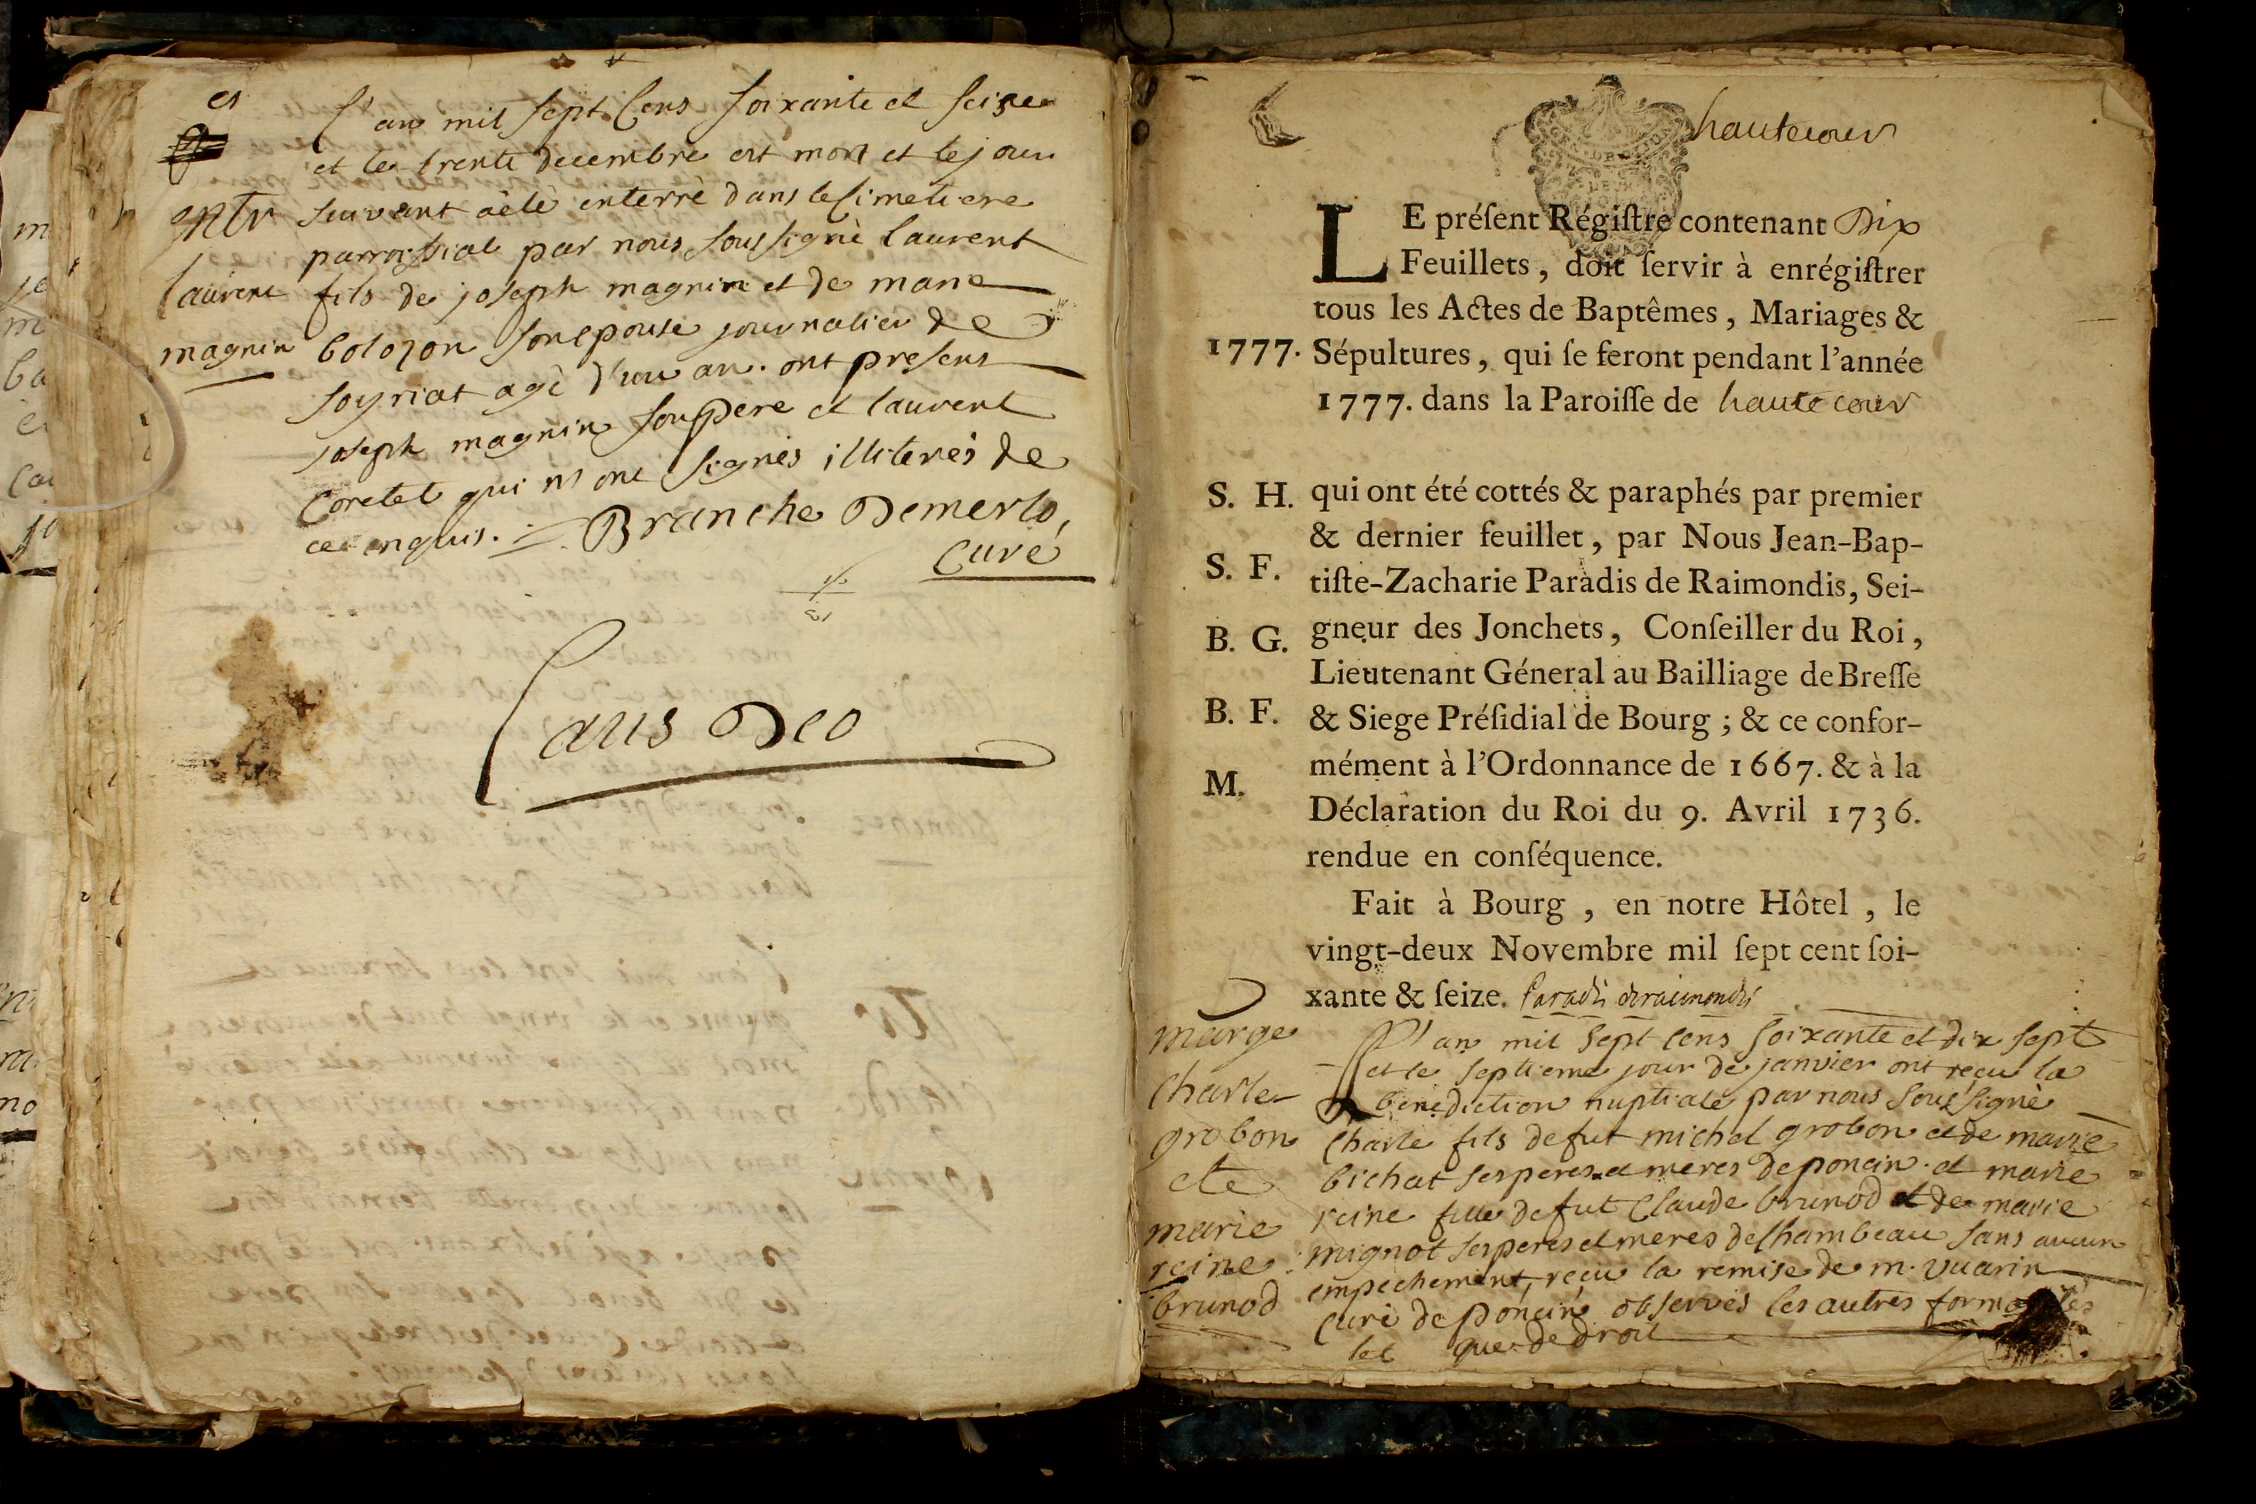 L'an mil sept cens soixante et seize
et le trente decembre est mort et le jour
suivant a ètè enterrè dans le cimetiere
parroissial par nous soussignè laurent
fils de joseph magnin et de marie
bolozon son epouse journalier de
soyriat agè d'un an. ont presens
joseph magnin son pere et laurent
coretet qui n'ont signès illiterès de
ce enquis. Branche Demerlo,
curé
ntr
laurent
magnin
Laus Deo
hautecour
LE préſent Régiſtre contenant Dix
Feuillets, doit ſervir à enrégiſtrer
tous les Actes de Baptêmes, Mariages &
1777. Sépultures, qui ſe feront pendant l'année
1777. dans la Paroiſſe de hautecour
S. H. qui ont été cottés & paraphés par premier
& dernier feuillet, par Nous Jean-Bap-
S. F. tiſte-Zacharie Paradis de Raimondis, Sei-
B. G. gneur des Jonchets, Conſeiller du Roi,
Lieutenant Géneral au Bailliage de Breſſe
B. F. & Siege Préſidial de Bourg ; & ce confor-
mément à l'Ordonnance de 1667. & à la
M.
Déclaration du Roi du 9. Avril 1736.
rendue en conſéquence.
Fait à Bourg, en notre Hôtel, le
vingt-deux Novembre mil ſept cent ſoi-
xante & ſeize. Paradis deraimondis
marge
charle
grobon
et
marie
reine
brunod
L'an mil sept cens soixante et dix sept
et le septieme jour de janvier ont reçu la
benediction nuptiale par nous soussignè
charle fils de fut michel grobon et de marie
bichat ses peres et meres de poncin. et marie
reine fille de fut claude brunod et de marie
mignot ses peres et meres de chambeau sans aucun
empechement, reçu la remise de m. vuarin
curè de poncin observès les autres formalitès
que de droit